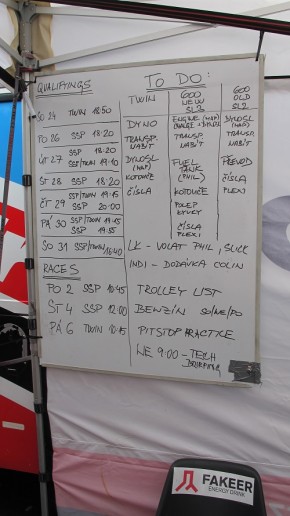 QUALIFYINGS
TO DO:
TWIN
600 NEW SL3
600 OLD SL2
SO 24 TWIN 18:50
PO 26 SSP 18:20
ČT 27 SSP 18:20
SSP/TWIN 19:10
ST 28 SSP 18:20
ČT 29 SSP/TWIN 19:15
SSP 20:00
PÁ 30 SSP/TWIN 19:15
SSP
SO 31 SSP/TWIN 16:40
DYNO
TRANSP.
NABÍT
DYNOSL
(MAP)
KOTOUČE
ČÍSLA
ENGINE (MAP)
TRANSP.
NABÍT
FUEL
TANK
(PHIL)
KOTOUČE
POLEP
KYTKY
ČÍSLA
PLEXI
DYNOSL
(MAP)
TRANSP.
NABÍT
PŘEVOD
ČÍSLA
PLEXI
LK - VOLAT PHIL, SLICK
INDI - DODÁVKA COLIN
RACES
PO 2 SSP 10:45
ST 4 SSP 12:00
PÁ 6 TWIN 10:15
TROLLEY LIST
BENZÍN SO/NE/PO
PITSTOP PRACTICE
NE 9:00 - TECH
BRIEFING
FAKEER
ENERGY DRINK